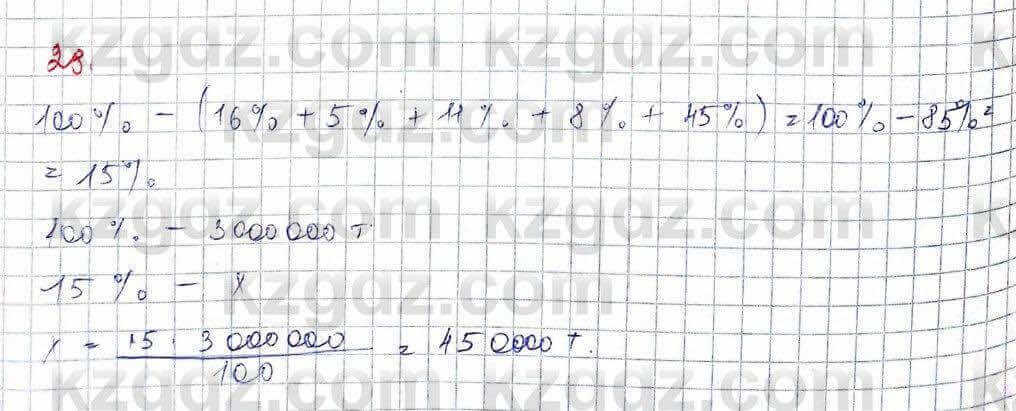 29.
100% - (16% + 5% + 11% + 8% + 45%) = 100% - 85% =
= 15%
100% - 3000 000 т
15% - x
x = 15 · 3 000 000 / 100 = 450000 т.
kzgdz.com
kzgdz.com
kzgdz.com
kzgdz.com
kzgdz.com
kzgdz.com
kzgdz.com
kzgdz.com